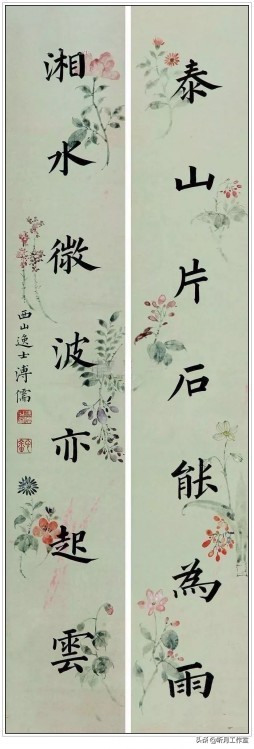 泰山片石能為雨
湘水微波亦起雲
西山逸士溥儒
头条@昕月工作室